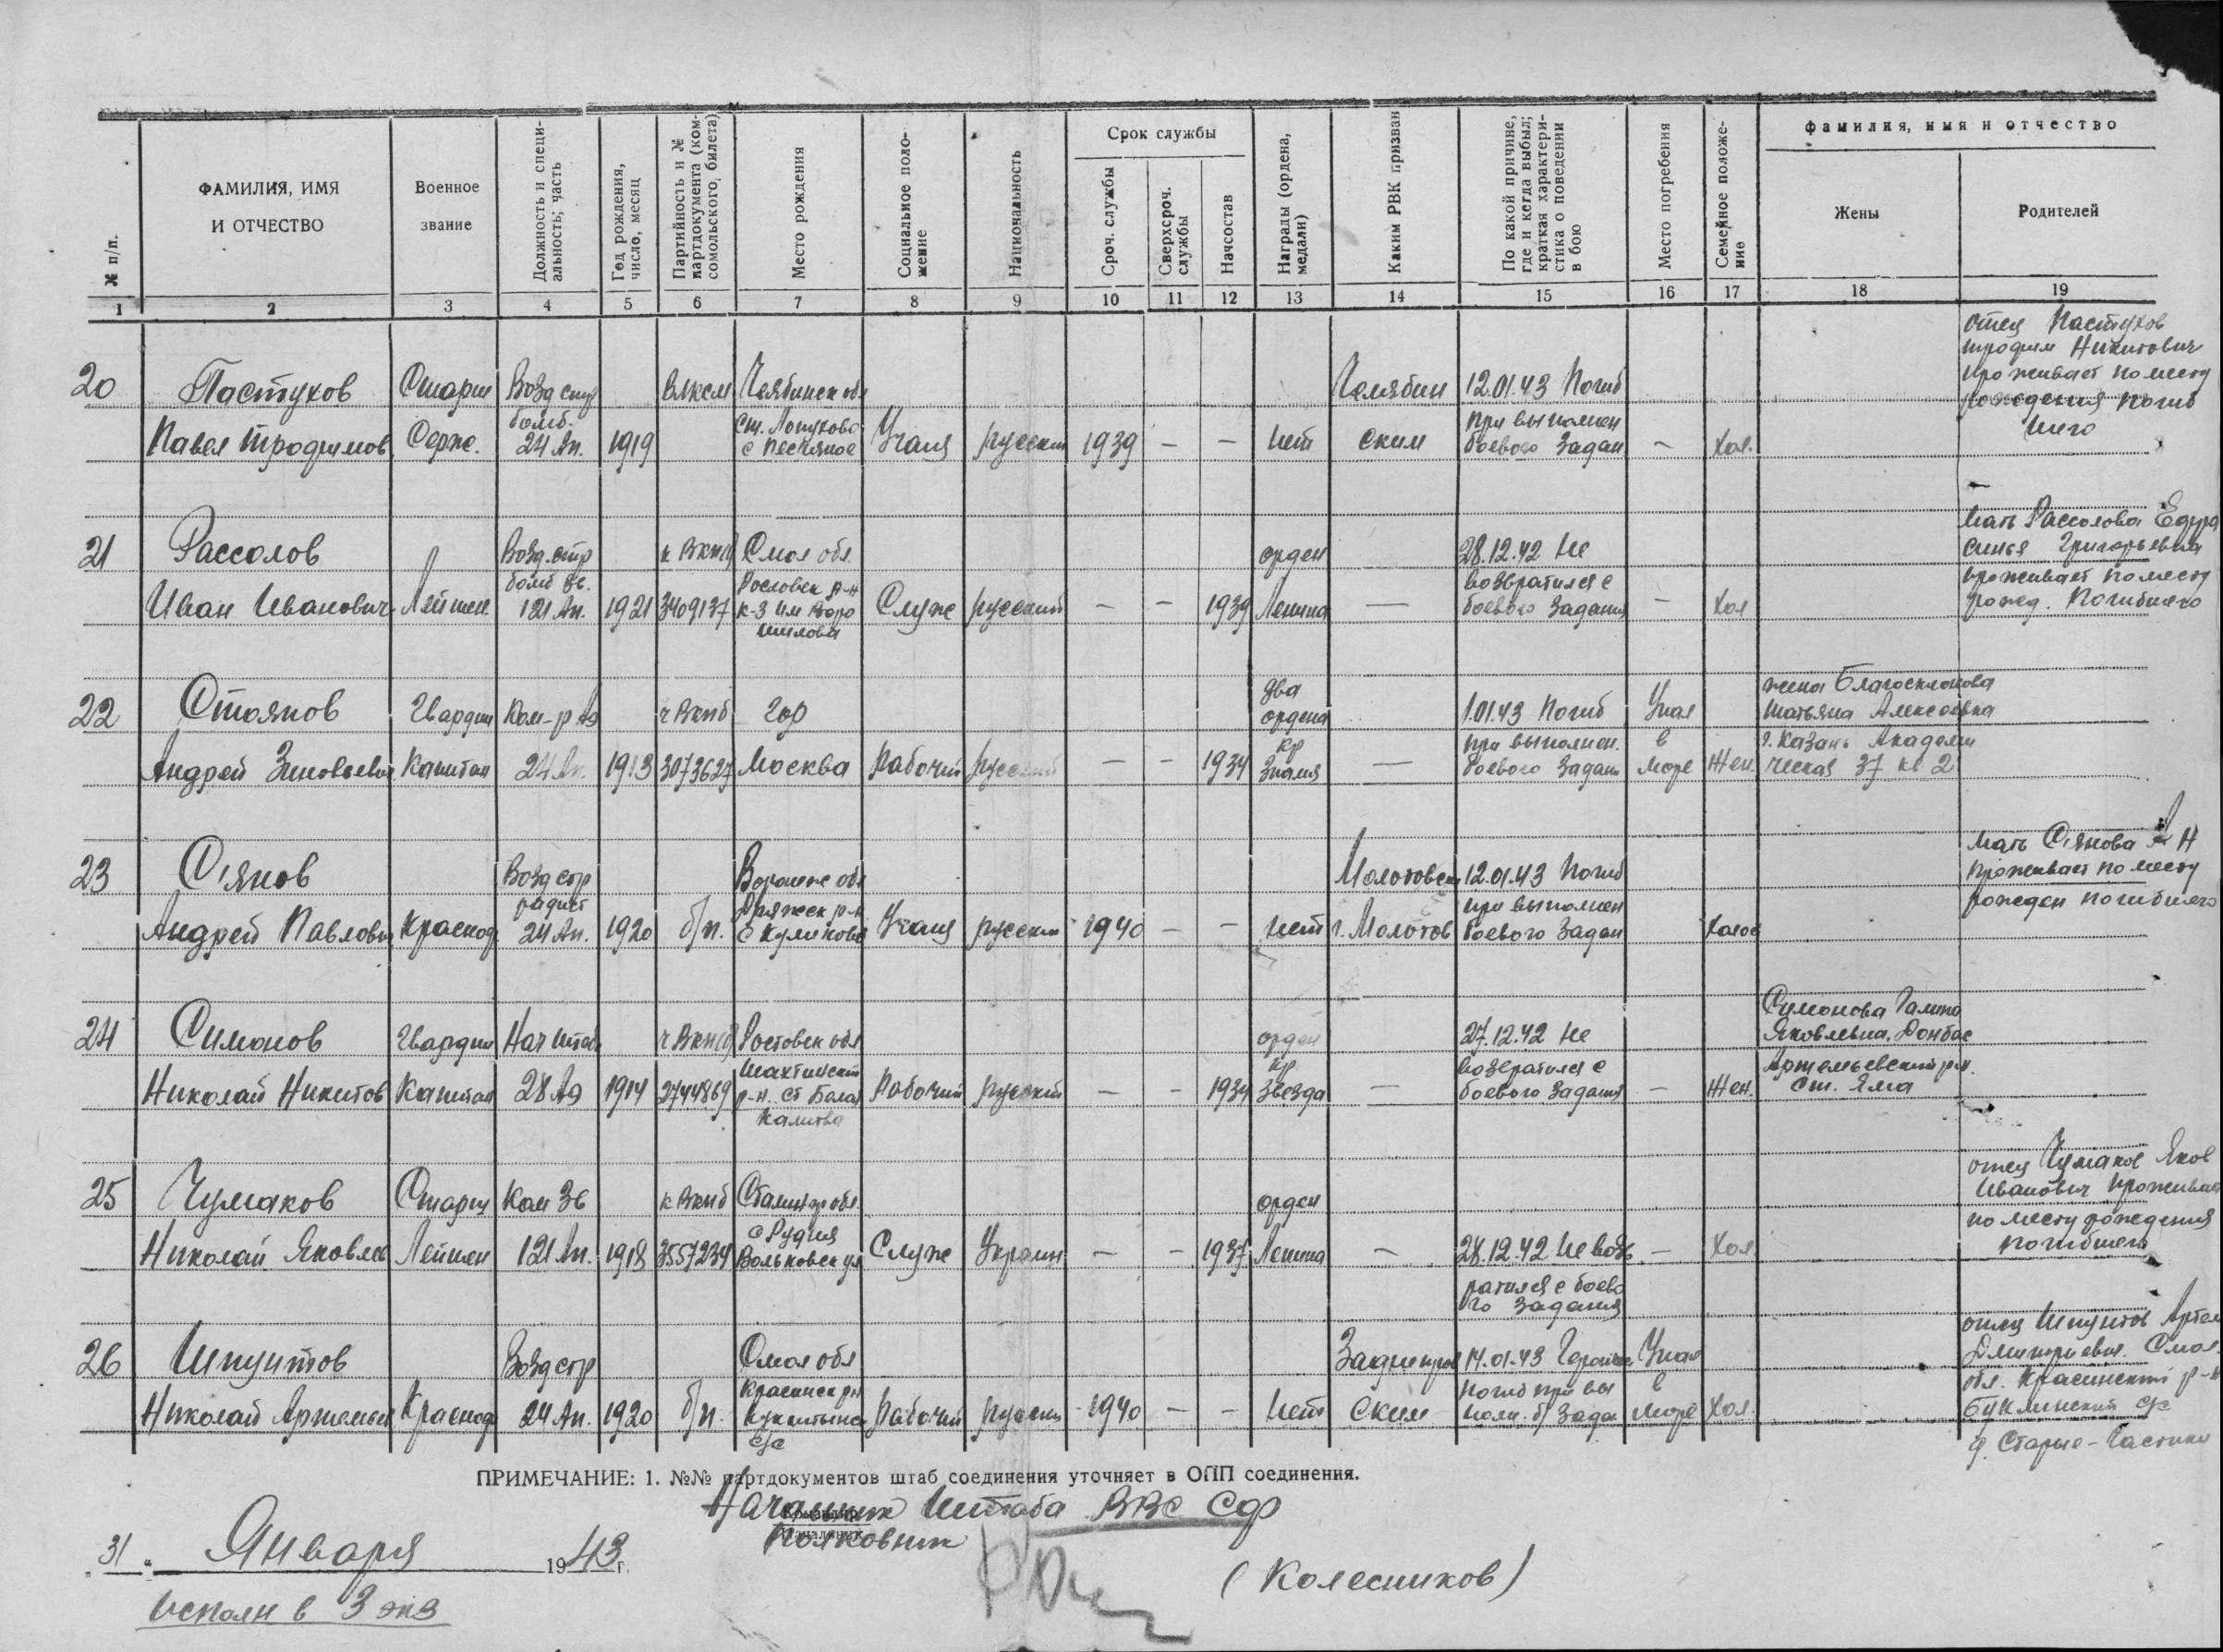 № п/п.
ФАМИЛИЯ, ИМЯ
И ОТЧЕСТВО
Военное
звание
Должность и специ-
альность, часть
Год рождения,
число, месяц
Партийность и №
партдокумента (ком-
сомольского билета)
Место рождения
Социальное поло-
жение
Национальность
Срок службы
Сроч. службы
Сверхсроч.
службы
Начсостав
Награды (ордена,
медали)
Каким РВК призван
По какой причине,
где и когда выбыл;
краткая характери-
стика о поведении
в бою
Место погребения
Семейное положе-
ние
фамилия, имя и отчество
Жены
Родителей
1 2 3 4 5 6 7 8 9 10 11 12 13 14 15 16 17 18 19
20
Пастухов
Павел Трофимов
Старш
Серж.
Возд стр
бомб.
24 Ап.
1919
ВЛКСМ
Челябинск обл
ст. Лопухово
с Песчаное
Учащ
русский
1939
—
—
нет
Челябин
ским
12.01.43 Погиб
при выполнен
боевого задан
—
Хол.
отец Пастухов
Трофим Никитович
проживает по месту
рождения погиб
шего
21
Рассолов
Иван Иванович
Лейтен.
Возд. стр
бомб эс.
121 Ап.
1921
к ВКП(б)
3409137
Смол обл.
Рословск р-н
к-з им Воро
шилова
Служ
русский
—
—
1939
орден
Ленина
—
28.12.42 Не
возвратился с
боевого задания
—
Хол
Мать Рассолова Едура
синья Григорьевна
проживает по месту
рожд. Погибшего
22
Стоянов
Андрей Зиновьевич
Гвардии
Капитан
Ком-р Аэ
24 Ап.
1913
ч ВКПб
3073627
гор
Москва
Рабочий
русский
—
—
1934
два
ордена
кр
Знамя
—
1.01.43 Погиб
при выполнен.
боевого задан
Упал
в
море
Жен.
жена Благосклонова
Татьяна Алексеевна
г. Казань Академи
ческая 37 кв 2
23
Сянов
Андрей Павлович
Красноф
Возд стр
радист
24 Ап.
1920
б/п.
Воронеж обл
р-н
с Куликово
Учащ
русский
1940
—
—
нет
Молотовск
г. Молотов
12.01.43 Погиб
при выполнен
боевого задан
Холос
Мать Сянова А Н
проживает по месту
рожден погибшего
24
Симонов
Николай Никитов
Гвардии
Капитан
Нач штаб
28 Аэ
1914
ч ВКП(б)
2744869
Ростовск обл
Шахтинский
р-н. ст Бела
Калитва
Рабочий
русский
—
—
1934
орден
кр
звезда
—
27.12.42 Не
возвратился с
боевого задания
—
Жен.
Симонова Галина
Яковлевна. Донбас
Артемьевский р-н.
ст. Яма
25
Чумаков
Николай Яковлев
Старш
Лейтен
Ком Зв
121 Ап.
1918
к ВКПб
3557234
Сталингр обл.
с Рудня
Вольковск ул
Служ
Украин
—
—
1937
орден
Ленина
—
28.12.42 Не возв
ратился с боево
го задания
—
Хол.
отец Чумаков Яков
Иванович проживает
по месту рождения
погибшего
26
Шпунтов
Николай Артемьев
Красноф
Возд стр
24 Ап.
1920
б/п.
Смол обл
Краснинск рн
с/с
Рабочий
русский
1940
—
—
Нет
Заднепров
ским
14.01.43 Геройски
погиб при вы
полн. б/ зада
Упал
в
море
Хол.
отец Шпунтов Артем
Дмитриевич. Смол.
обл. Краснинский р-н
с/с
д. Старые-
ПРИМЕЧАНИЕ: 1. №№ партдокументов штаб соединения уточняет в ОПП соединения.
Начальник Штаба ВВС СФ
Полковник
(Колесников)
31 „ Января 1943 г.
исполн в 3 экз